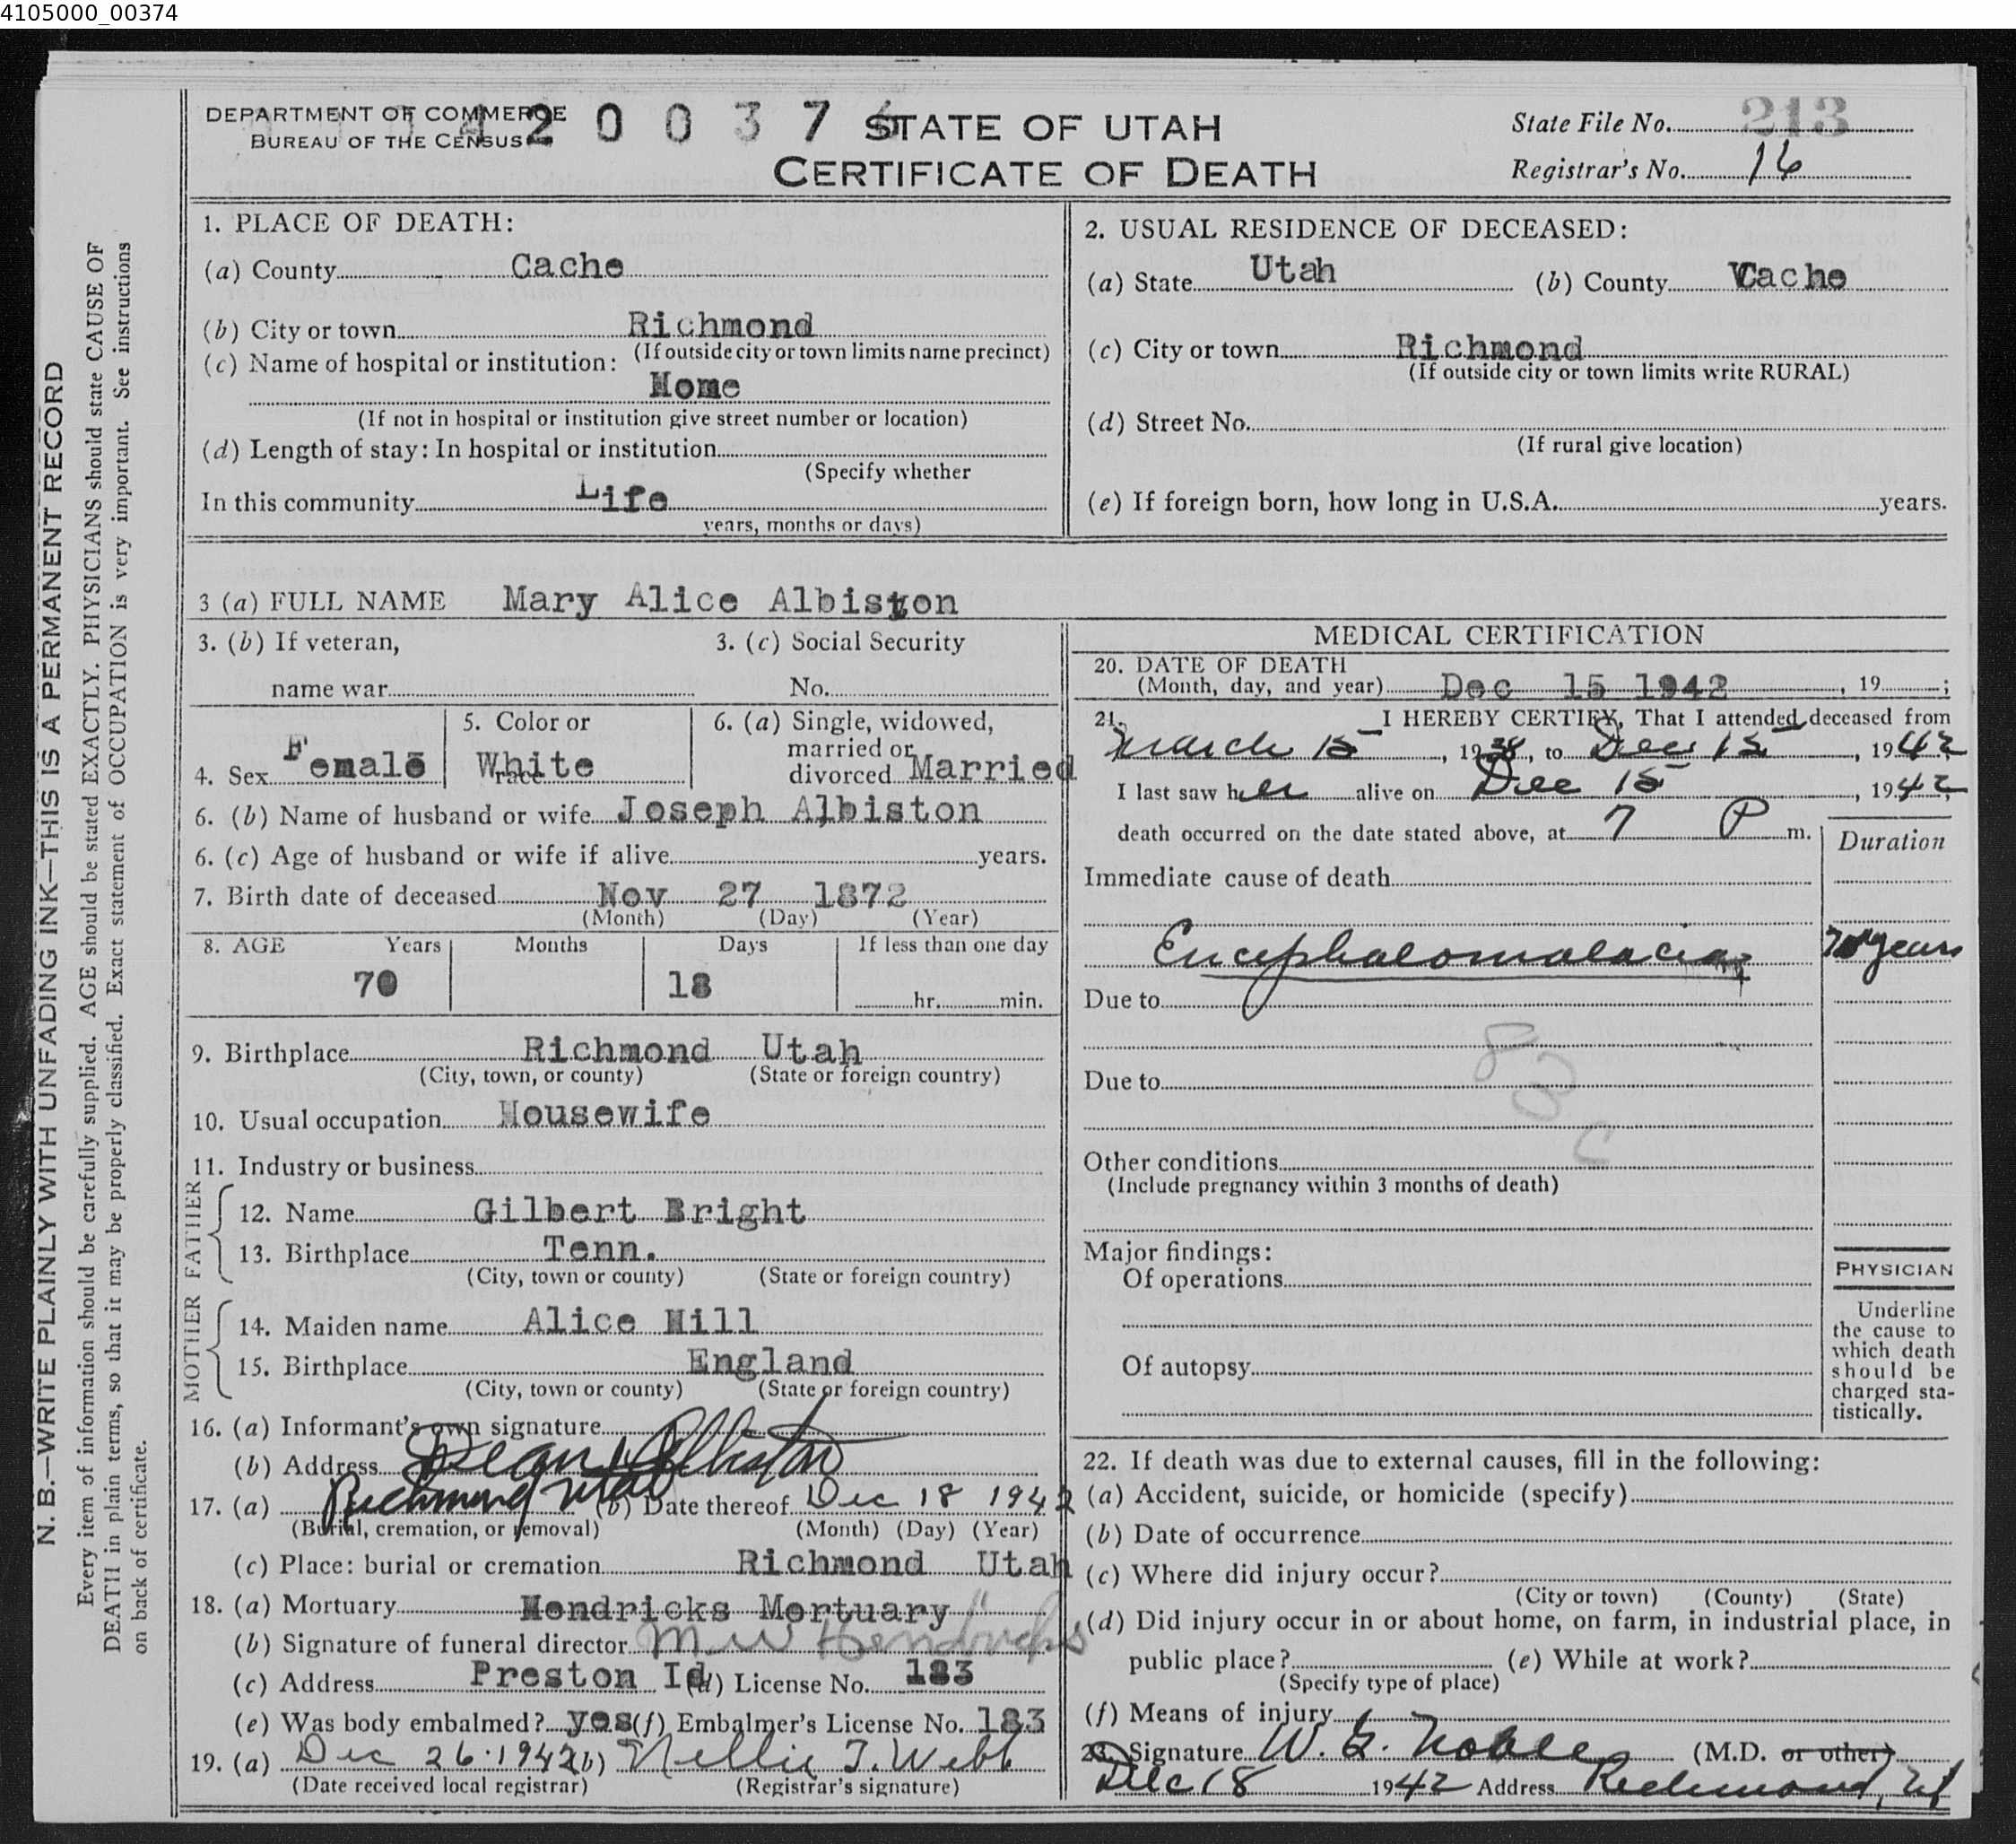 4105000_00374
DEPARTMENT OF COMMERCE
BUREAU OF THE CENSUS
2 0 0 3 7 4
STATE OF UTAH
CERTIFICATE OF DEATH
State File No. 213
Registrar's No. 16
N. B.—WRITE PLAINLY WITH UNFADING INK—THIS IS A PERMANENT RECORD
Every item of information should be carefully supplied. AGE should be stated EXACTLY. PHYSICIANS should state CAUSE OF
DEATH in plain terms, so that it may be properly classified. Exact statement of OCCUPATION is very important. See instructions
on back of certificate.
1. PLACE OF DEATH:
(a) County Cache
(b) City or town Richmond
(If outside city or town limits name precinct)
(c) Name of hospital or institution:
Home
(If not in hospital or institution give street number or location)
(d) Length of stay: In hospital or institution
(Specify whether
In this community Life
years, months or days)
2. USUAL RESIDENCE OF DECEASED:
(a) State Utah (b) County Cache
(c) City or town Richmond
(If outside city or town limits write RURAL)
(d) Street No.
(If rural give location)
(e) If foreign born, how long in U.S.A. years.
3 (a) FULL NAME Mary Alice Albiston
3. (b) If veteran, 3. (c) Social Security
name war No.
4. Sex Female 5. Color or race White 6. (a) Single, widowed, married or divorced Married
6. (b) Name of husband or wife Joseph Albiston
6. (c) Age of husband or wife if alive years.
7. Birth date of deceased Nov 27 1872
(Month) (Day) (Year)
8. AGE Years Months Days If less than one day
70 18 hr. min.
9. Birthplace Richmond Utah
(City, town, or county) (State or foreign country)
10. Usual occupation Housewife
11. Industry or business
FATHER
12. Name Gilbert Bright
13. Birthplace Tenn.
(City, town or county) (State or foreign country)
MOTHER
14. Maiden name Alice Hill
15. Birthplace England
(City, town or county) (State or foreign country)
16. (a) Informant's own signature
(b) Address Dean Albiston
17. (a) Richmond Utah (b) Date thereof Dec 18 1942
(Burial, cremation, or removal) (Month) (Day) (Year)
(c) Place: burial or cremation Richmond Utah
18. (a) Mortuary Hendricks Mortuary
(b) Signature of funeral director M W Hendricks
(c) Address Preston Id (d) License No. 183
(e) Was body embalmed? yes (f) Embalmer's License No. 183
19. (a) Dec 26 · 1942 (b) Nellie T. Webb
(Date received local registrar) (Registrar's signature)
MEDICAL CERTIFICATION
20. DATE OF DEATH
(Month, day, and year) Dec 15 1942, 19 ;
21. I HEREBY CERTIFY, That I attended deceased from
March 15, 1938, to Dec 15, 1942
I last saw her alive on Dec 15, 1942
death occurred on the date stated above, at 7 P m.
Duration
Immediate cause of death
Encephalomalacia years
Due to
83 C
Due to
Other conditions
(Include pregnancy within 3 months of death)
Major findings:
Of operations
Of autopsy
PHYSICIAN
Underline
the cause to
which death
should be
charged sta-
tistically.
22. If death was due to external causes, fill in the following:
(a) Accident, suicide, or homicide (specify)
(b) Date of occurrence
(c) Where did injury occur?
(City or town) (County) (State)
(d) Did injury occur in or about home, on farm, in industrial place, in
public place? (e) While at work?
(Specify type of place)
(f) Means of injury
23. Signature W. G. Noble (M.D. or other)
Dec 18 1942 Address Richmond, Ut